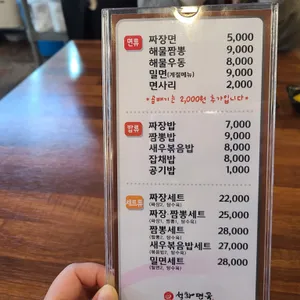 면류
짜장면 5,000
해물짬뽕 9,000
해물우동 8,000
밀면(계절메뉴) 9,000
면사리 2,000
*곱빼기는 2,000원 추가입니다*
밥류
짜장밥 7,000
짬뽕밥 9,000
새우볶음밥 8,000
잡채밥 8,000
공기밥 1,000
세트류
짜장세트 22,000
(짜장2, 탕수육)
짜장.짬뽕세트 25,000
(짜장1, 짬뽕1, 탕수육)
짬뽕세트 28,000
(짬뽕2, 탕수육)
새우볶음밥세트 27,000
밀면세트 28,000
(밀면2, 탕수육)